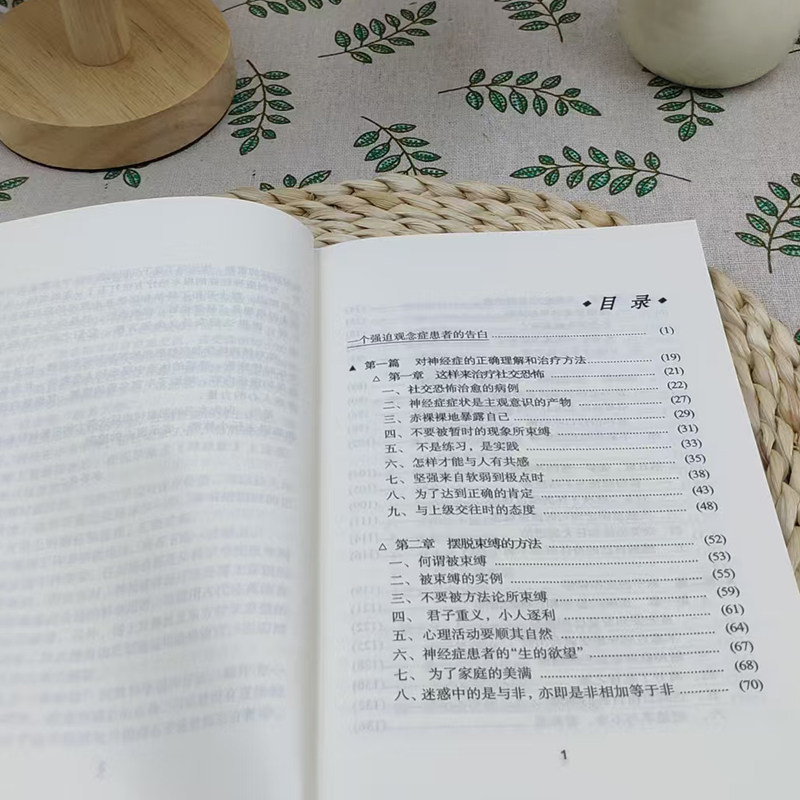 ◆ 目 录 ◆
一个强迫观念症患者的告白 (1)
▲ 第一篇 对神经症的正确理解和治疗方法 (19)
△ 第一章 这样来治疗社交恐怖 (21)
一、社交恐怖治愈的病例 (22)
二、神经症症状是主观意识的产物 (27)
三、赤裸裸地暴露自己 (29)
四、不要被暂时的现象所束缚 (31)
五、不是练习，是实践 (33)
六、怎样才能与人有共感 (35)
七、坚强来自软弱到极点时 (38)
八、为了达到正确的肯定 (43)
九、与上级交往时的态度 (48)
△ 第二章 摆脱束缚的方法 (52)
一、何谓被束缚 (53)
二、被束缚的实例 (55)
三、不要被方法论所束缚 (59)
四、君子重义，小人逐利 (61)
五、心理活动要顺其自然 (64)
六、神经症患者的“生的欲望” (67)
七、为了家庭的美满 (68)
八、迷惑中的是与非，亦即是非相加等于非 (70)
1